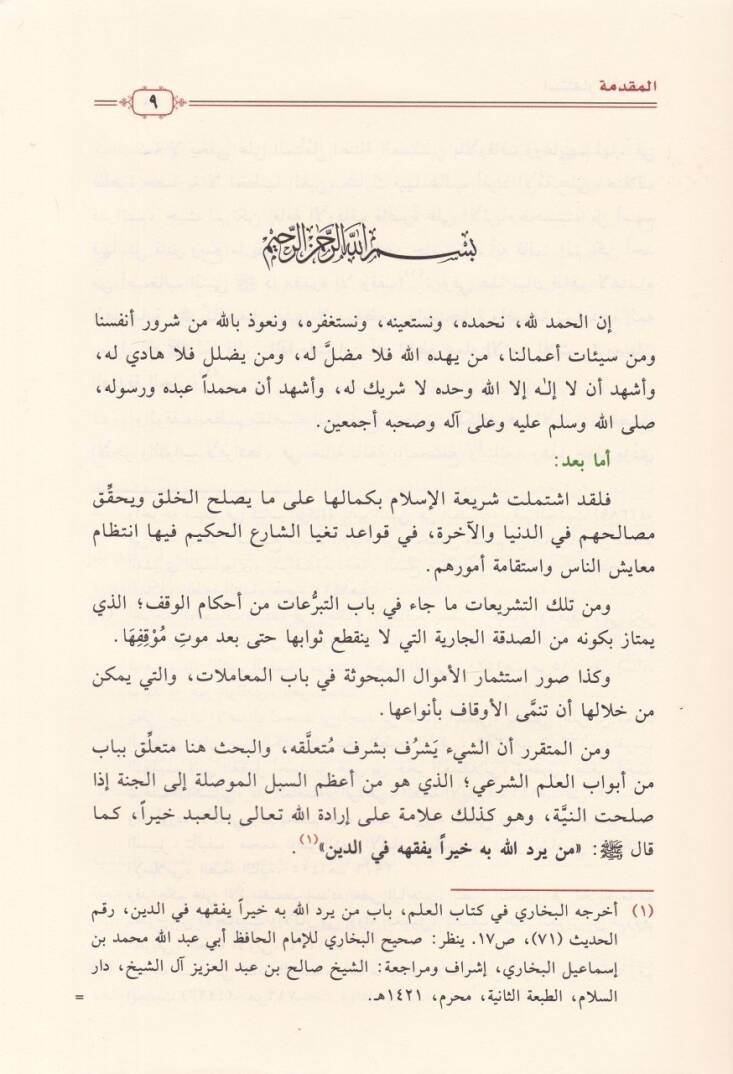 المقدمة
٩
بسم الله الرحمن الرحيم
إن الحمد لله، نحمده، ونستعينه، ونستغفره، ونعوذ بالله من شرور أنفسنا
ومن سيئات أعمالنا، من يهده الله فلا مضلَّ له، ومن يضلل فلا هادي له،
وأشهد أن لا إلـٰه إلا الله وحده لا شريك له، وأشهد أن محمداً عبده ورسوله،
صلى الله وسلم عليه وعلى آله وصحبه أجمعين.
أما بعد:
فلقد اشتملت شريعة الإسلام بكمالها على ما يصلح الخلق ويحقِّق
مصالحهم في الدنيا والآخرة، في قواعد تغيا الشارع الحكيم فيها انتظام
معايش الناس واستقامة أمورهم.
ومن تلك التشريعات ما جاء في باب التبرُّعات من أحكام الوقف؛ الذي
يمتاز بكونه من الصدقة الجارية التي لا ينقطع ثوابها حتى بعد موتِ مُوْقِفِهَا.
وكذا صور استثمار الأموال المبحوثة في باب المعاملات، والتي يمكن
من خلالها أن تنمَّى الأوقاف بأنواعها.
ومن المتقرر أن الشيء يَشرُف بشرف مُتعلَّقه، والبحث هنا متعلِّق بباب
من أبواب العلم الشرعي؛ الذي هو من أعظم السبل الموصلة إلى الجنة إذا
صلحت النيَّة، وهو كذلك علامة على إرادة الله تعالى بالعبد خيراً، كما
قال ﷺ: «من يرد الله به خيراً يفقهه في الدين»(١).
(١) أخرجه البخاري في كتاب العلم، باب من يرد الله به خيراً يفقهه في الدين، رقم
الحديث (٧١)، ص١٧. ينظر: صحيح البخاري للإمام الحافظ أبي عبد الله محمد بن
إسماعيل البخاري، إشراف ومراجعة: الشيخ صالح بن عبد العزيز آل الشيخ، دار
السلام، الطبعة الثانية، محرم، ١٤٢١هـ. =